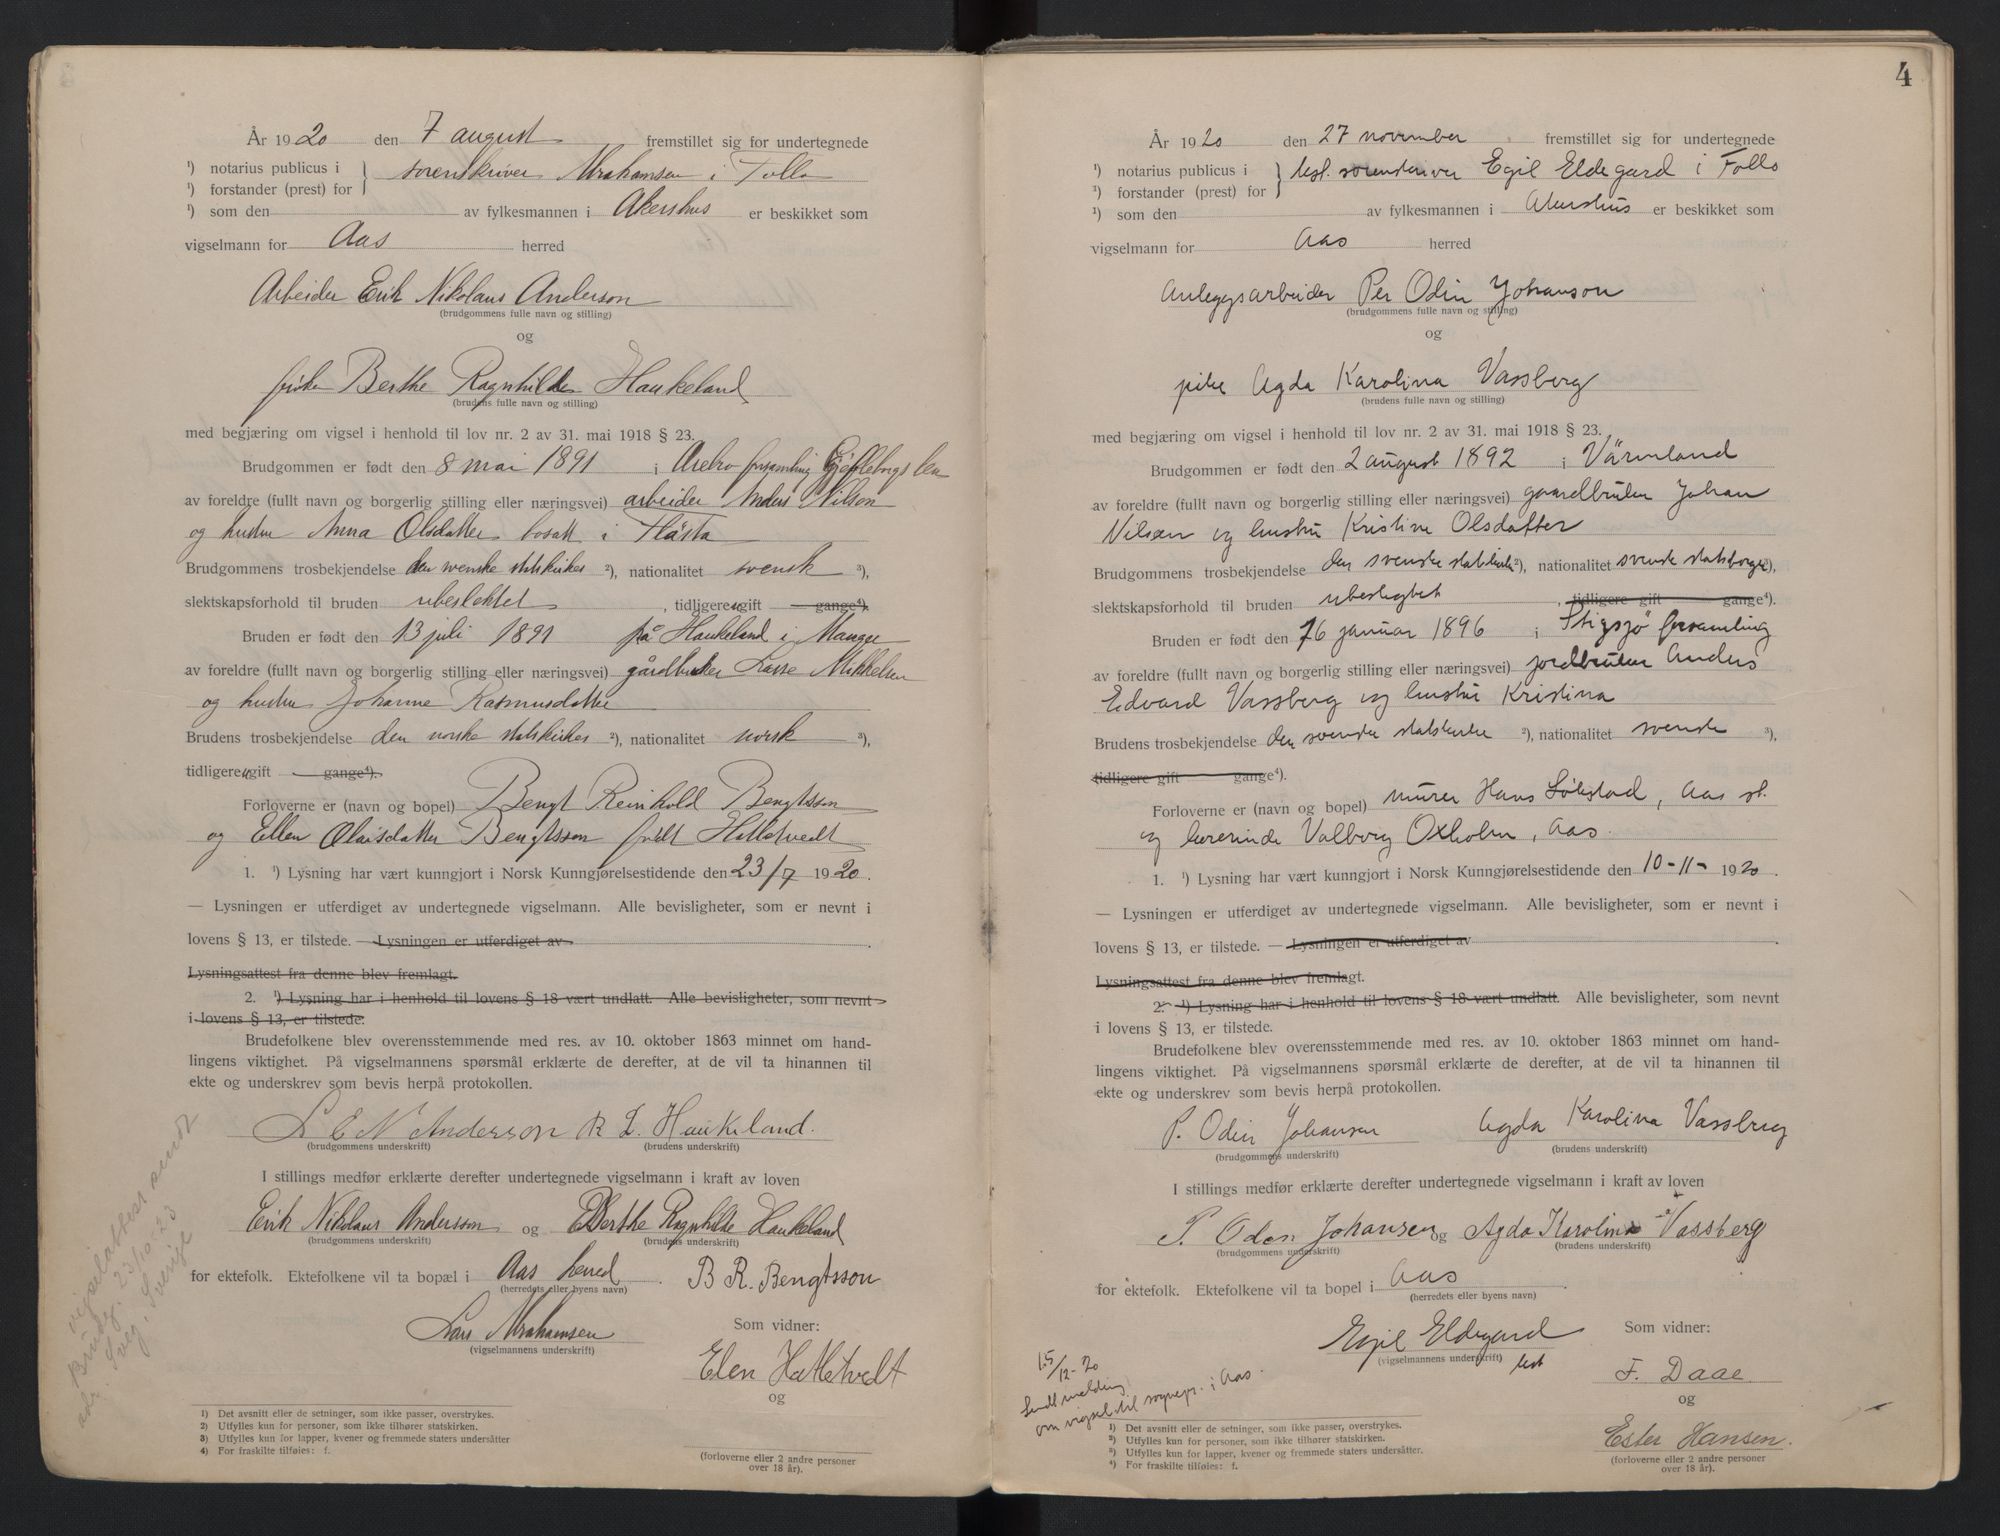 År 1920 den 7 august fremstillet sig for undertegnede
¹) notarius publicus i } sorenskriver Abrahamsen i Follo
¹) forstander (prest) for
¹) som den av fylkesmannen i Akershus er beskikket som
vigselmann for Aas herred
Arbeider Erik Nikolaus Anderson
(brudgommens fulle navn og stilling)
og
frøken Berthe Ragnhilde Haukeland
(brudens fulle navn og stilling)
med begjæring om vigsel i henhold til lov nr. 2 av 31. mai 1918 § 23.
Brudgommen er født den 8 mai 1891 i forsamling Gjefleborgs len
av foreldre (fullt navn og borgerlig stilling eller næringsvei) arbeider Anders Nilson
og hustru Anna Olsdatter bosatt i Flästa
Brudgommens trosbekjendelse den svenske statskirkes ²), nationalitet svensk ³),
slektskapsforhold til bruden ubeslektet, tidligere ugift gange⁴).
Bruden er født den 13 juli 1891 på Haukeland i Manger
av foreldre (fullt navn og borgerlig stilling eller næringsvei) gårdbruker Lasse Mikkelsen
og hustru Johanne Rasmusdatter
Brudens trosbekjendelse den norske statskirkes ²), nationalitet norsk ³),
tidligere ugift gange⁴).
Forloverne er (navn og bopel) Bengt Reinhold Bengtsson
og Ellen Olaisdatter Bengtsson født Hatletvedt
1. ¹) Lysning har vært kunngjort i Norsk Kunngjørelsestidende den 23/7 1920.
— Lysningen er utferdiget av undertegnede vigselmann. Alle bevisligheter, som er nevnt i
lovens § 13, er tilstede. — Lysningen er utferdiget av
Lysningsattest fra denne blev fremlagt.
2. ¹) Lysning har i henhold til lovens § 18 vært undlatt. Alle bevisligheter, som nevnt
i lovens § 13, er tilstede.
Brudefolkene blev overensstemmende med res. av 10. oktober 1863 minnet om hand-
lingens viktighet. På vigselmannens spørsmål erklærte de derefter, at de vil ta hinannen til
ekte og underskrev som bevis herpå protokollen.
L E N Anderson R L. Haukeland.
(brudgommens underskrift) (brudens underskrift)
I stillings medfør erklærte derefter undertegnede vigselmann i kraft av loven
Erik Nikolaus Anderson og Berthe Ragnhilde Haukeland
(brudgommens underskrift) (brudens underskrift)
for ektefolk. Ektefolkene vil ta bopæl i Aas herred. B R. Bengtsson
(herredets eller byens navn)
Lars Abrahamsen Som vidner:
(vigselmannens underskrift)
Elen Hatletvedt
og
¹) Det avsnitt eller de setninger, som ikke passer, overstrykes.
²) Utfylles kun for personer, som ikke tilhører statskirken.
³) Utfylles kun for lapper, kvener og fremmede staters undersåtter
⁴) For fraskilte tilføies: f.
(forloverne eller 2 andre personer
over 18 år).
vigselattest sendt
Brudg. 23/10-23
adr. Sveg. Sverige
4
År 1920 den 27 november fremstillet sig for undertegnede
¹) notarius publicus i } best. sorenskriver Egil Eldegard i Follo
¹) forstander (prest) for
¹) som den av fylkesmannen i Akershus er beskikket som
vigselmann for Aas herred
Anleggsarbeider Per Odin Johanson
(brudgommens fulle navn og stilling)
og
pike Agda Karolina Vassberg
(brudens fulle navn og stilling)
med begjæring om vigsel i henhold til lov nr. 2 av 31. mai 1918 § 23.
Brudgommen er født den 2 august 1892 i Värmland
av foreldre (fullt navn og borgerlig stilling eller næringsvei) gaardbruker Johan
Nilsen og hustru Kristine Olsdatter
Brudgommens trosbekjendelse den svenske statskirke ²), nationalitet svensk statsborger ³),
slektskapsforhold til bruden ubeslegtet, tidligere gift gange⁴).
Bruden er født den 16 januar 1896 i Stigsjö forsamling
av foreldre (fullt navn og borgerlig stilling eller næringsvei) jordbruker Anders
Edvard Vassberg og hustru Kristina
Brudens trosbekjendelse den svenske statskirke ²), nationalitet svenske ³),
tidligere gift gange⁴).
Forloverne er (navn og bopel) murer Hans Sølystad, Aas st.
og lærerinde Valborg Oxholm, Aas.
1. ¹) Lysning har vært kunngjort i Norsk Kunngjørelsestidende den 10-11-1920.
— Lysningen er utferdiget av undertegnede vigselmann. Alle bevisligheter, som er nevnt i
lovens § 13, er tilstede. — Lysningen er utferdiget av
Lysningsattest fra denne blev fremlagt.
2. ¹) Lysning har i henhold til lovens § 18 vært undlatt. Alle bevisligheter, som nevnt
i lovens § 13, er tilstede.
Brudefolkene blev overensstemmende med res. av 10. oktober 1863 minnet om hand-
lingens viktighet. På vigselmannens spørsmål erklærte de derefter, at de vil ta hinannen til
ekte og underskrev som bevis herpå protokollen.
P. Odin Johansen Agda Karolina Vassberg
(brudgommens underskrift) (brudens underskrift)
I stillings medfør erklærte derefter undertegnede vigselmann i kraft av loven
P. Oden Johansen og Agda Karolina Vassberg
(brudgommens underskrift) (brudens underskrift)
for ektefolk. Ektefolkene vil ta bopel i Aas
(herredets eller byens navn)
Egil Eldegard Som vidner:
(vigselmannens underskrift) best
F. Daae
og
Ester Hansen.
(forloverne eller 2 andre personer
over 18 år).
15/12-20
Sendt melding
om vigsel til sognepr. i Aas.
¹) Det avsnitt eller de setninger, som ikke passer, overstrykes.
²) Utfylles kun for personer, som ikke tilhører statskirken.
³) Utfylles kun for lapper, kvener og fremmede staters undersåtter.
⁴) For fraskilte tilføies: f.